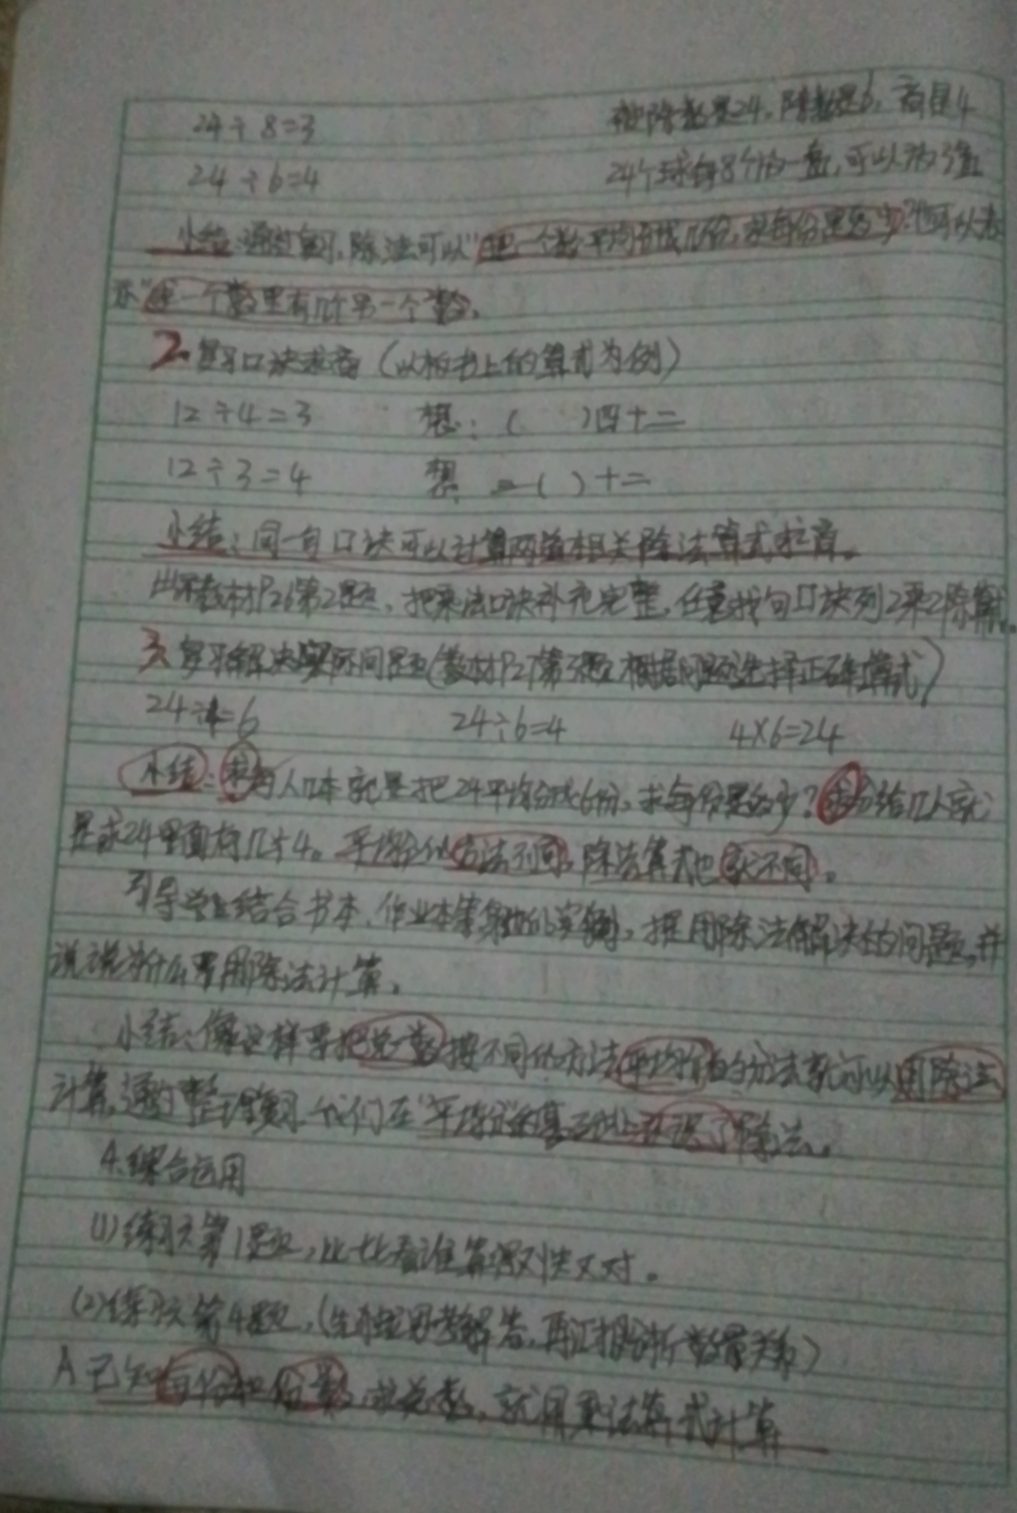 24÷8=3 被除数是24,除数是6,商是4
24÷6=4 24个球每8个为一盘,可以分为3盘
小结:通过复习,除法可以"把一个数平均分成几份,求每份是多少?"也可以表
示"求一个数里有几个另一个数。
2.复习口诀求商(以板书上的算式为例)
12÷4=3 想:( )四十二
12÷3=4 想 三( )十二
小结:同一句口诀可以计算两道相关除法算式求商。
出示教材P26第2题,把乘法口诀补充完整,任意找句口诀列2乘2除算式。
3.复习解决实际问题(教材P27第3题根据问题选择正确算式)
24÷4=6 24÷6=4 4×6=24
小结:求每人几本就是把24平均分成6份,求每份是多少?求分给几人就
是求24里面有几个4。平均分的方法不同,除法算式也就不同。
引导学生结合书本、作业本等身边的实例,提用除法解决的问题,并
说说为什么要用除法计算。
小结:像这样要把总数按不同的方法平均分的方法就可以用除法
计算,通过整理复习,我们在"平均分"的基础上认识了除法。
4.综合运用
(1)练习六第1题,比一比看谁算得又快又对。
(2)练习六第4题,(生独立思考解答,再汇报分析数量关系)
A已知每份和份数,求总数,就用乘法算式计算